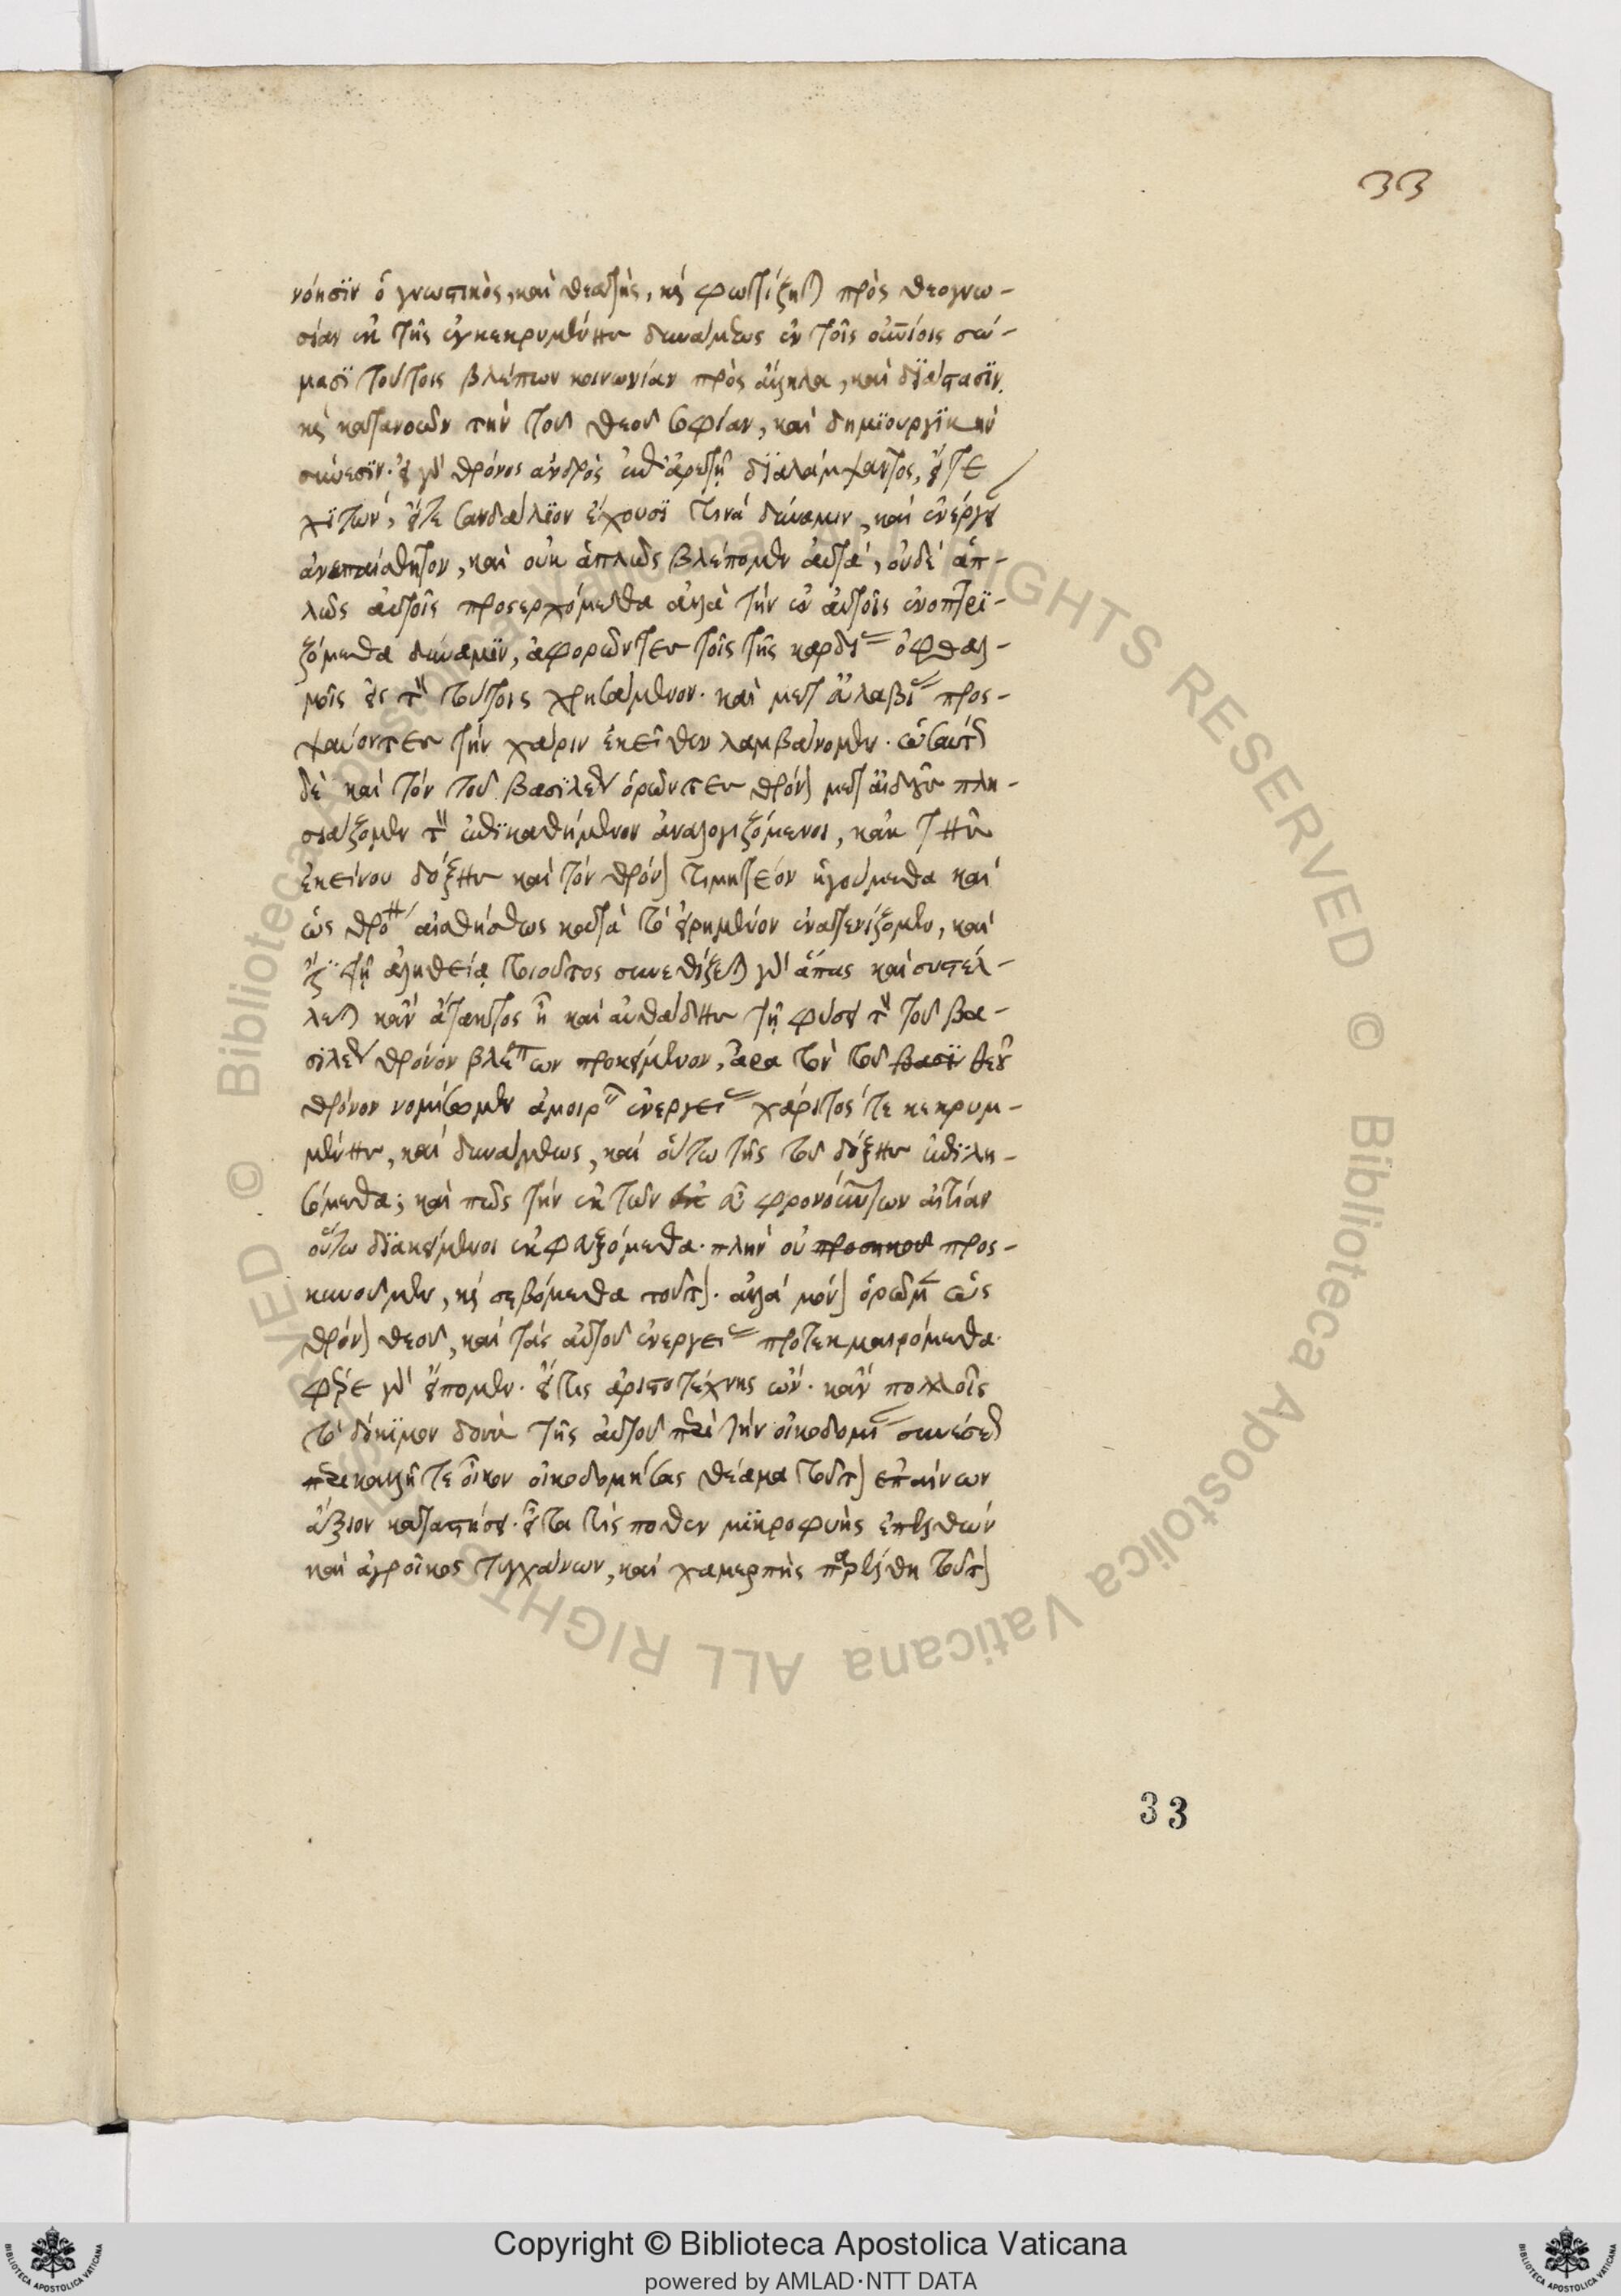 33
νόησϊν ὁ γνωστικὸς, καὶ θεατὴς, κὶ φωτίζεται πρὸς θεογνω-
σίαν ἐκ τῆς ἐγκεκρυμμένης δυνάμεως ἐν τοῖς οὐρανίοις σώ-
μασϊ τούτοις βλέπων κοινωνίαν πρὸς ἄλληλα, καὶ δϊάστασϊν,
κὶ κατανοῶν τὴν τοῦ θεοῦ σοφίαν, καὶ δημϊουργϊκὴν
σύνεσϊν. εἰ γὰρ θρόνος ἀνδρὸς ἐπ' ἀρετῇ δϊαλάμψαντος, εἴτε
χϊτών, εἴτε σανδάλϊον ἔχουσϊ τινὰ δύναμιν, καὶ ἐνέργει
ἀνεπαίσθητον, καὶ οὐκ ἁπλῶς βλέπομεν αὐτά, οὐδὲ ἁπ-
λῶς αὐτοῖς προσερχόμεθα ἀλλὰ τὴν ἐν αὐτοῖς ἐνοπτρϊ-
ζόμεθα δύναμϊν, ἀφορῶντες τοῖς τῆς καρδίας ὀφθαλ-
μοῖς εἰς τὸν τούτοις χρησάμενον. καὶ μετ' εὐλαβείας προσ-
ψαύοντες τὴν χάριν ἐκεῖθεν λαμβάνομεν. ὡσαύτως
δὲ καὶ τὸν τοῦ βασϊλέως ὁρῶντες θρόνον μετ' αἰδοῦς πλη-
σιάζομεν τὸν ἐπϊκαθήμενον ἀναλογιζόμενοι, κἀκ τῆς
ἐκείνου δόξης καὶ τὸν θρόνον τιμητέον ἡγούμεθα καὶ
ὡς θρόνον αἰσθήσεως κατὰ τὸ εἰρημένον ἐνατενίζομεν, καὶ
τῇ ἀληθείᾳ τοιοῦτος συνεθίζεται γὰρ ἅπας καὶ συστέλ-
λεται κἂν ἄτακτος ᾖ καὶ αὐθάδης τῇ φύσει τὸν τοῦ βα-
σϊλέως θρόνον βλέπων προκείμενον, ἆρα τὸν τοῦ βασϊ θεοῦ
θρόνον νομίσομεν ἄμοιρον ἐνεργείας χάριτός τε κεκρυμ-
μένης, καὶ δυνάμεως, καὶ οὕτω τῆς τοῦ δόξης ἐπϊλη-
σόμεθα; καὶ πῶς τὴν ἐκ τῶν εὖ φρονούντων αἰτίαν
οὕτω δϊακείμενοι ἐκφευξόμεθα. πλὴν οὐ προσηκου προσ-
κυνοῦμεν, κὶ σεβόμεθα τοῦτον. ἀλλὰ μόνον ὁρῶμεν ὡς
θρόνον θεοῦ, καὶ τὰς αὐτοῦ ἐνεργείας προτεκμαιρόμεθα.
φέρε γὰρ εἴπομεν. εἴ τις ἀριστοτέχνης ὢν. κἂν πολλοῖς
τὸ δόκϊμον δοὺς τῆς αὐτοῦ περὶ τὴν οἰκοδομὴν συνέσεως
περικαλλῆ τε οἶκον οἰκοδομήσας θέαμα τοῦτον ἐπαίνων
ἄξιον καταστήσει. εἶτα τὶς ποθεν μϊκροφυὴς ἐπελθὼν
καὶ ἀγροῖκος τυγχάνων, καὶ χαμερπὴς παρέλθῃ τοῦτον
33
Copyright © Biblioteca Apostolica Vaticana
powered by AMLAD·NTT DATA